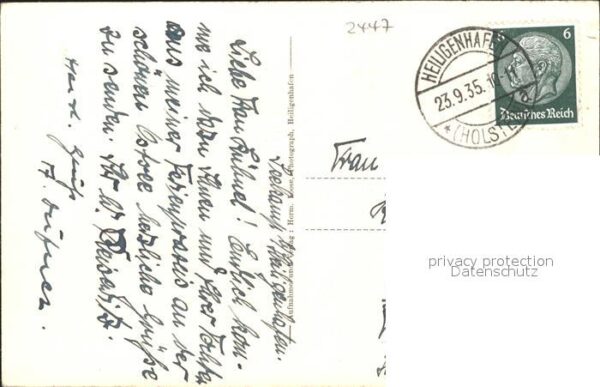 Seekamp Heiligenhafen.
Liebe Frau Kühnel! Endlich kom-
me ich dazu Ihnen und Ihrer Tochter
aus meiner Ferienpraxis an der
schönen Ostsee herzliche Grüße
zu senden.
Herzl. Gruß
Aufnahme und Verlag: Herm. Kose, Photograph, Heiligenhafen
2447
HEILIGENHAFEN
23.9.35.
a
*(HOLST
6
Deutsches Reich
Frau
privacy protection
Datenschutz